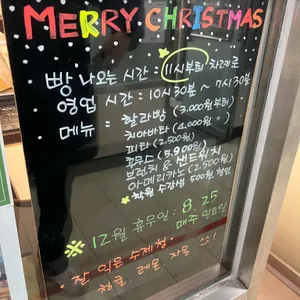 MERRY CHRISTMAS
빵 나오는 시간 : 11시부터 차례로
영업 시간 : 10시 30분 ~ 7시 30분
메뉴 : 할라빵 (3,000원부터)
치아바타 (4,000원)
피타 (2,500원)
후무스 (5,900원)
브런치 & 샌드위치
아메리카노 (2,500원)
학원 수강생 500원 할인
※ 12월 휴무일 : 8, 25
매주 일요일
- 잘 익은 수제청 -
청귤 레몬 자몽